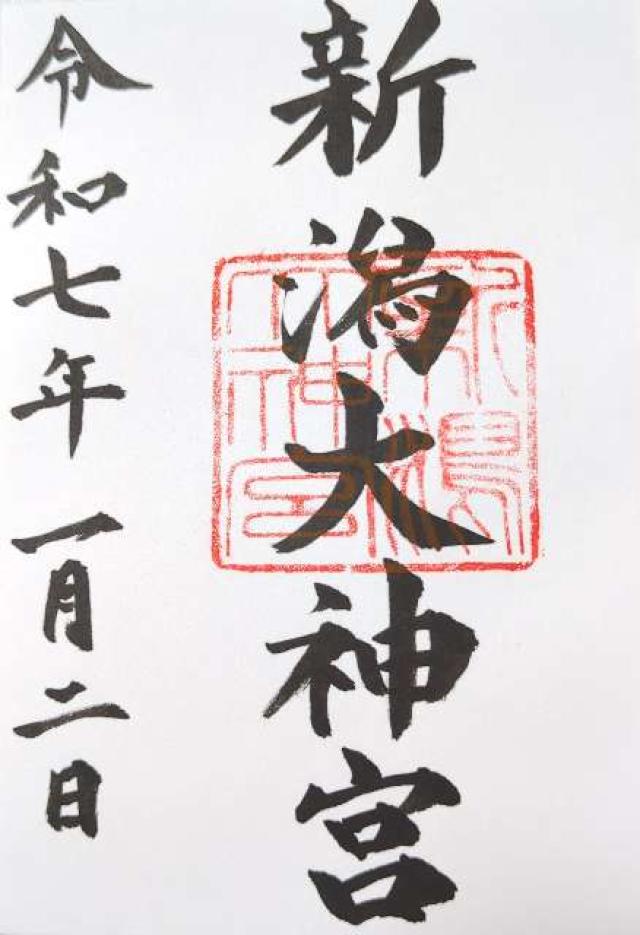 新潟大神宮
令和七年一月二日